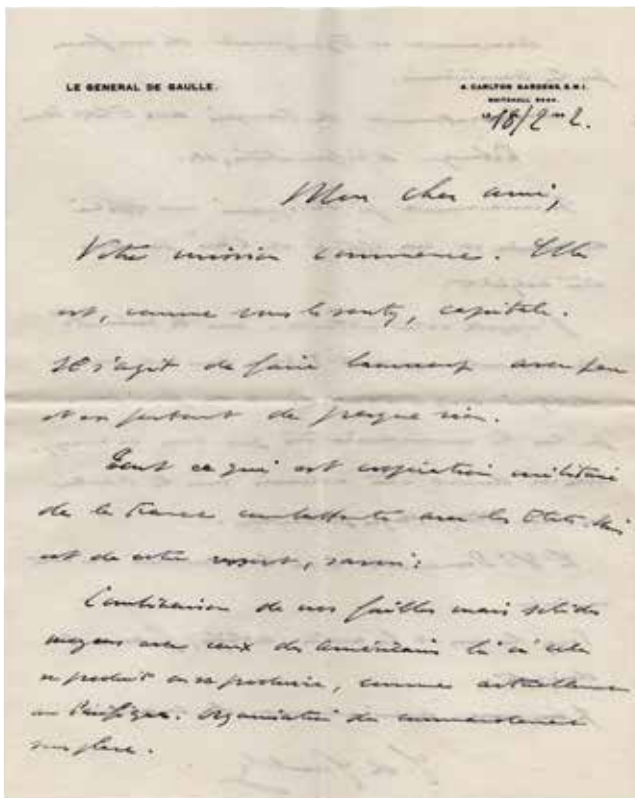 LE GENERAL DE GAULLE.
4. CARLTON GARDENS, S.W.1.
WHITEHALL
LE 18/2 2.
Mon cher ami,
Votre mission commence. Elle
est, comme vous le sentez, capitale.
Il s'agit de faire beaucoup avec peu
et en partant de presque rien.
Tout ce qui est coopération militaire
de la France combattante avec les Etats-Unis
est de votre ressort, savoir :
Combinaison de nos faibles mais solides
moyens avec ceux des Américains là où cela
se produit ou se produira, comme actuellement
au Pacifique. Organisation du commandement
sur place.